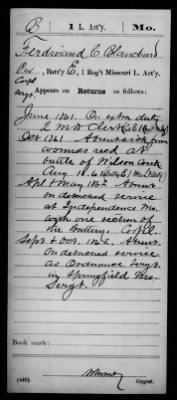 B | 1 L. Art'y. | Mo.
Ferdinand C Blanchard
Pvt, Batt'y E, 1 Reg't Missouri L. Art'y.
Corpl
Sergt. Appears on Returns as follows:
June 1861. On extra duty
Oct 1861. Absent sick from
wounds recd at
battle of Wilson Creek
Aug 10. 61
Apl & May 1862 Absent
on detached service
at Independence Mo.
with one section of
the battery. Corpl.
Sept & Oct. 1862. Absent
on detached service
as Ordnance Sergt.
in Springfield Mo.
Sergt.
Book mark:
(546)
Copyist.